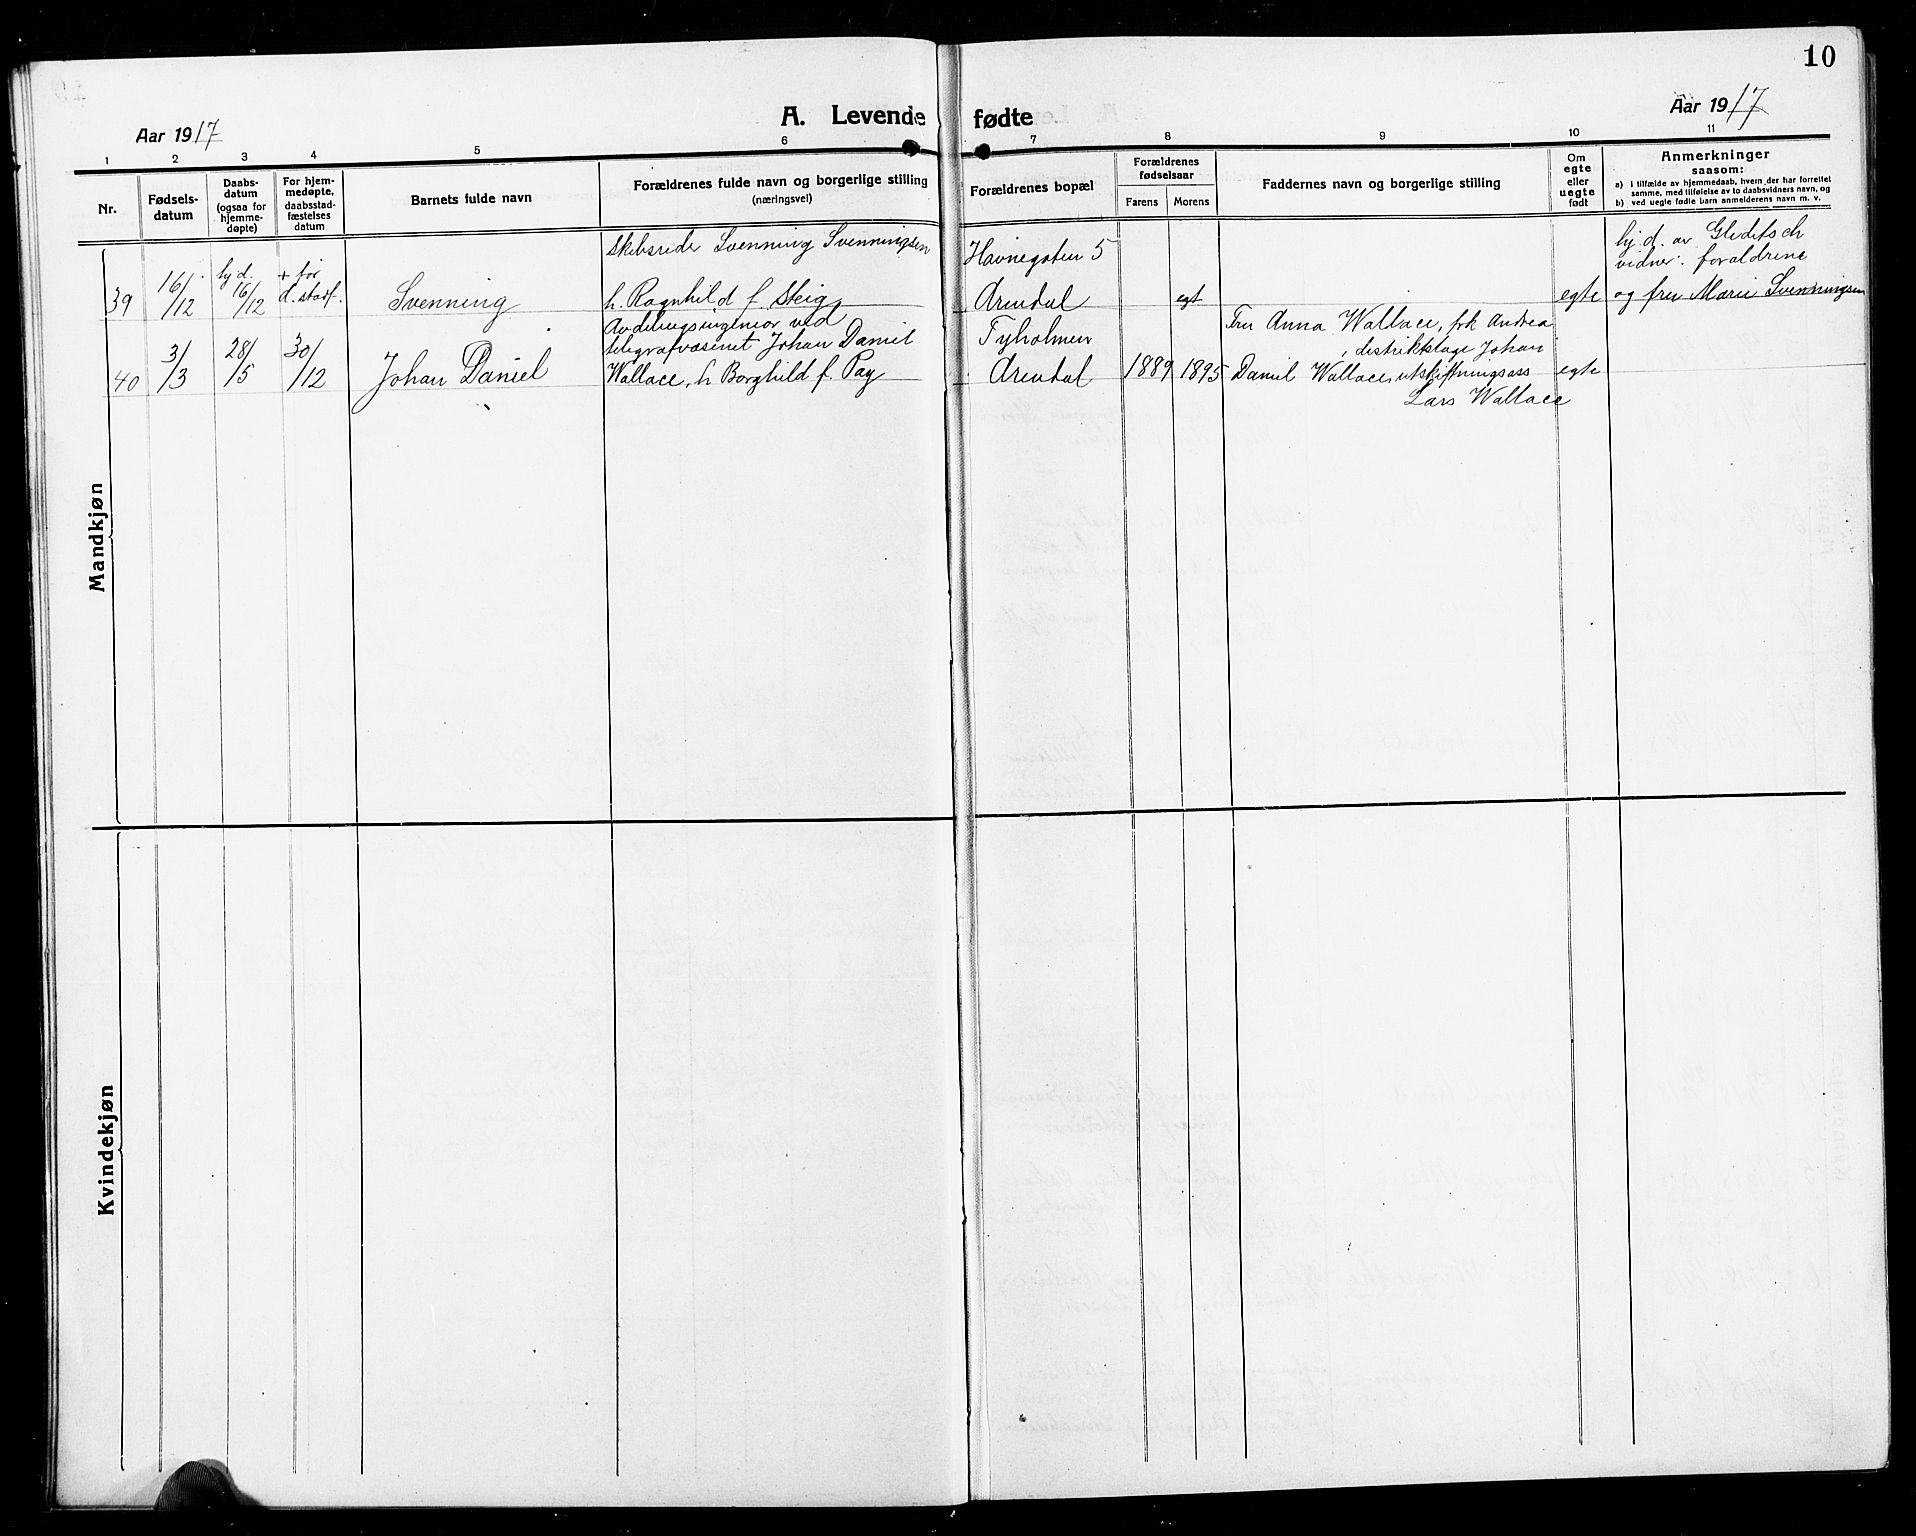 10
A. Levende fødte
Aar 1917
Aar 1917
1 2 3 4 5 6 7 8 9 10 11
Nr.
Fødsels-
datum
Daabs-
datum
(ogsaa for
hjemme-
døpte)
For hjem-
medøpte,
daabsstad-
fæstelses
datum
Barnets fulde navn
Forældrenes fulde navn og borgerlige stilling
(næringsvei)
Forældrenes bopæl
Forældrenes
fødselsaar
Farens Morens
Faddernes navn og borgerlige stilling
Om
egte
eller
uegte
født
Anmerkninger
saasom:
a) i tilfælde av hjemmedaab, hvem der har forrettet
samme, med tilføielse av to daabsvidners navn, og
b) ved uegte fødte barn anmelderens navn m. v.
Mandkjøn
39
16/12
hj. d.
16/12
+ før
d. stadf.
Svenning
Skibsreder Svenning Svenningsen
h. Ragnhild f. Steig
Havnegaten 5
Arendal
egt
egte
hj. d. av Gleditsch
vidner: forældrene
og fru Marie Svenningsen
40
3/3
28/5
30/12
Johan Daniel
Avdelingsingeniør ved
telegrafvæsenet Johan Daniel
Wallace, h Borghild f. Pay
Tyholmen
Arendal
1889 1895
Fru Anna Wallace, frk Andrea
, distriktslæge Johan
Daniel Wallace, utskiftningsass
Lars Wallace
egte
Kvindekjøn